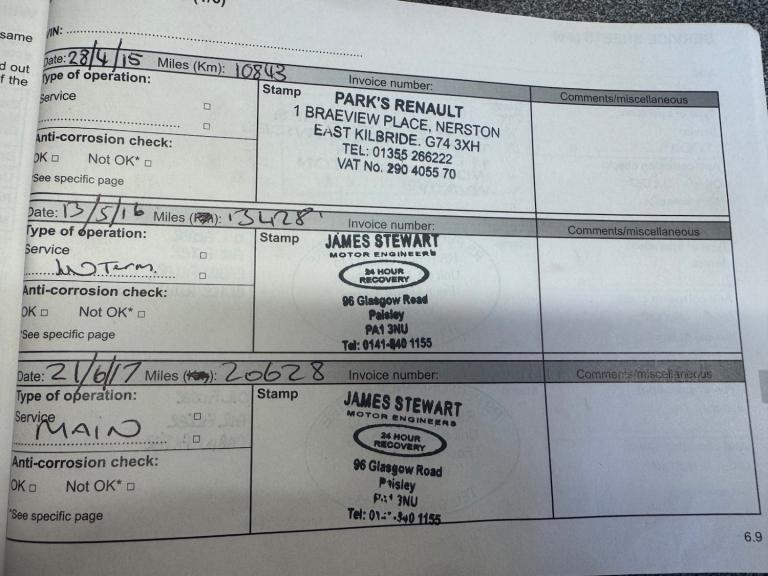 same
d out
f the
VIN:
Date: 28/4/15 Miles (Km): 10843 Invoice number: Comments/miscellaneous
Type of operation:
Service
Anti-corrosion check:
OK □ Not OK* □
*See specific page
Stamp
PARK'S RENAULT
1 BRAEVIEW PLACE, NERSTON
EAST KILBRIDE. G74 3XH
TEL: 01355 266222
VAT No. 290 4055 70
Date: 13/5/16 Miles (Km): 13428 Invoice number: Comments/miscellaneous
Type of operation:
Service
Term.
Anti-corrosion check:
OK □ Not OK* □
*See specific page
Stamp
JAMES STEWART
MOTOR ENGINEERS
24 HOUR
RECOVERY
96 Glasgow Road
Paisley
PA1 3NU
Tel: 0141-840 1155
Date: 21/6/17 Miles (Km): 20628 Invoice number: Comments/miscellaneous
Type of operation:
Service
MAIN
Anti-corrosion check:
OK □ Not OK* □
*See specific page
Stamp
JAMES STEWART
MOTOR ENGINEERS
24 HOUR
RECOVERY
96 Glasgow Road
Paisley
3NU
Tel: 840 1155
6.9